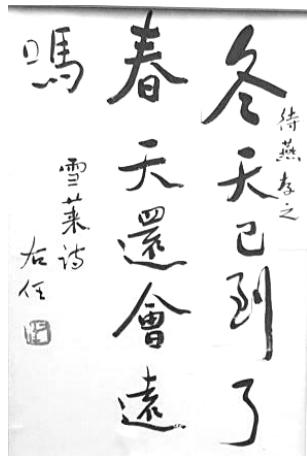 待燕存之
冬天已到了
春天還會遠
嗎
雪萊詩
右任